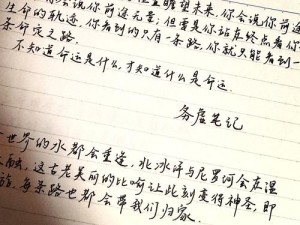 位置瞻望未来,你会说你
会说你前途无量;但要是你站在终点看你
生命的轨迹,你看到的只有一条路,你就只能看到一
条命定之路。
不知道命运是什么,才知道什么是命运。
务虚笔记
世界的水都会重逢,北冰洋与尼罗河会在湿
云中交融,这古老美丽的比喻让此刻变得神圣,即
每条路也都会带我们归家。